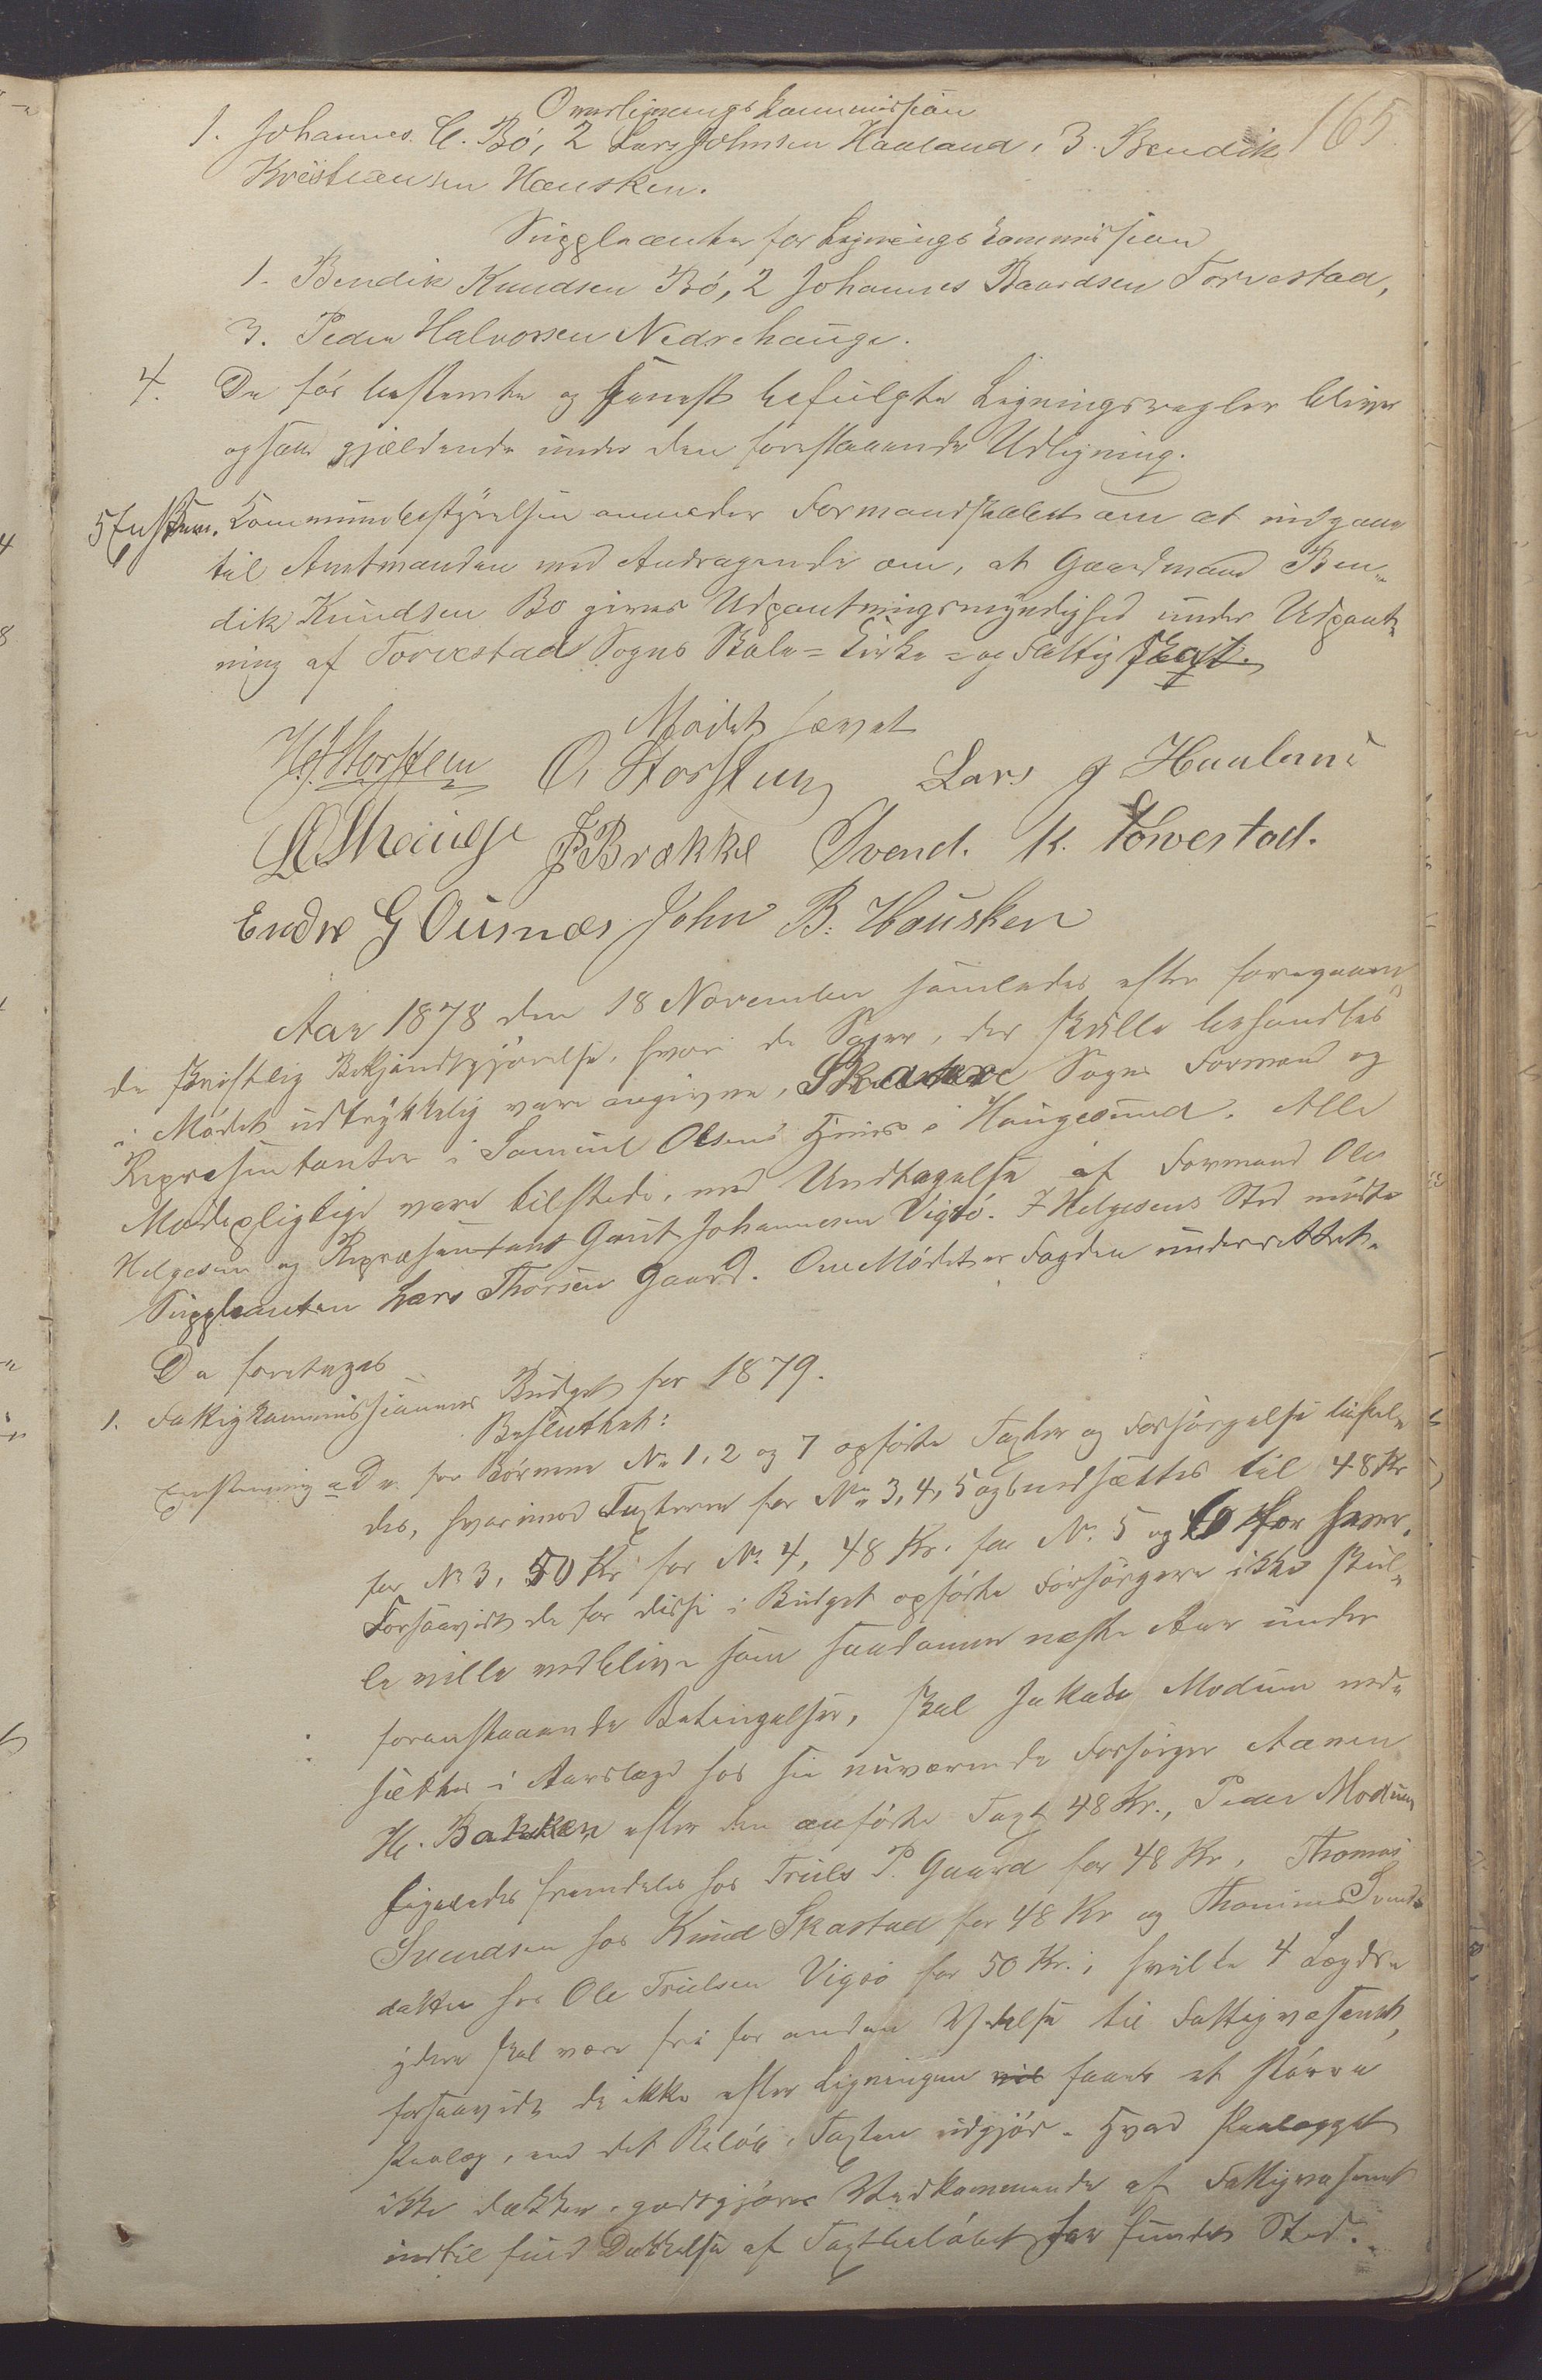 165.
Overligningskommission
1. Johannes C. Bö, 2 Lars Johnsen Haaland, 3. Bendik
Kristiansen Hausken.
Suppleanter for Ligningskommission
1. Bendik Knudsen Bö, 2 Johannes Baardsen Torvestad,
3. Peder Halvorsen Nedrehauge.
4. De før bestemte og senest befulgte Ligningsregler bliver
ogsaa gjældende under den forestaaende Udligning.
5 Enstem. Kommunebestyrelsen anmoder Formandskabet om at indgaae
til Amtmanden med Andragende om, at Gaardmand Ben-
dik Knudsen Bö gives Udpantningsmyndighed under Udpant-
ning af Torvestad Sogns Skole- Kirke- og Fattigskat.
Mødet hævet
H. J. Storstein O. Storstein Lars J Haaland
J Brekke Svend. K. Torvestad.
Endre G Ousnæs John B. Hausken
Aar 1878 den 18 November samledes efter foregaaen-
de skriftlig Bekjendtgjørelse, hvori de Sager, der skulle behandles
i Mødet udtrykkelig vare angivne, Skaare Sogns Formænd og
Repræsentanter i Samuel Olsens Huus i Haugesund. Alle
Mødepligtige vare tilstede, med Undtagelse af Formand Ole
Helgesen og Repræsentant Gaut Johannesen Vigsö. I Helgesens Sted mødte
Suppleanten Lars Thorsen Gaard. Om Mødet er Fogden underrettet.
Da foretoges
1. Fattigkommissionens Budget for 1879.
Besluttet:
Enstemmig a De for Børnene No 1, 2 og 7 opførte Taxter og Forsørgelse bifal-
des, hvorimod Taxterne for No 3, 4, 5 og 6 nedsættes til 48 Kr
for No 3, 50 Kr for No 4, 48 Kr. for No. 5 og 6 for hver.
Forsaavidt de for disse i Budget opførte Forsørgere ikke skul-
le ville vedblive som saadanne næste Aar under
foranstaaende Betingelser, skal Jakob Modum ned-
sættes i Aarslægd hos sin nuværende Forsørger Aanen
H. Bakken efter den anførte Taxt 48 Kr., Peder Modum
ligeledes fremdeles hos Truls P. Gaard for 48 Kr, Thomas
Svendsen hos Knud Skastad for 48 Kr og Thomine Svends-
datter hos Ole Trulsen Vigsö for 50 Kr.; hvilke 4 Lægds-
ydere skal være fri for anden Ydelse til Fattigvæsenet,
forsaavidt de ikke efter Ligningen vil faaet et større
Paalæg, end det Beløb, Taxten udgjør. Hvad Paalægget
ikke dækker, godtgjøres Vedkommende af Fattigvæsenet
indtil fuld Dækkelse af Taxtbeløbet har fundet Sted.